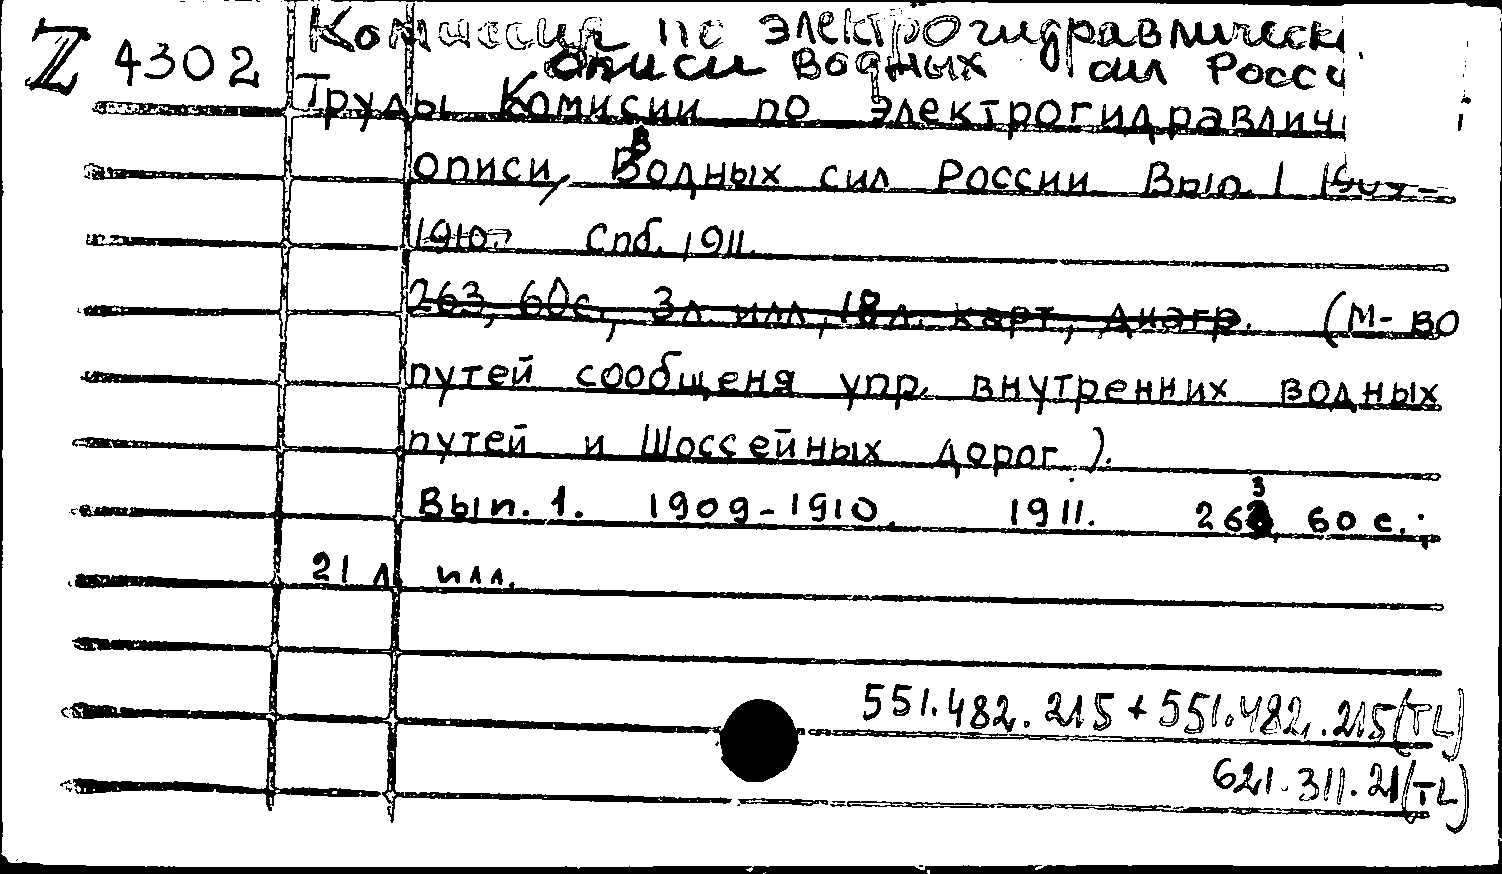 Z 4302 Комиссия по электрогидравлическ
описи водных сил Росси
Труды Комисии по электрогидравлич
описи, Водных сил России Вып. 1 1909-
1910. Спб. 1911.
263, 60с., 3л. илл, 18л. карт, диагр. (М-во
путей сообщеня упр. внутренних водных
путей и Шоссейных дорог).
Вып. 1. 1909-1910. 1911. 263, 60 с.;
21 л. илл.
551.482.215 + 551.482.215(TL)
621.311.21(TL)